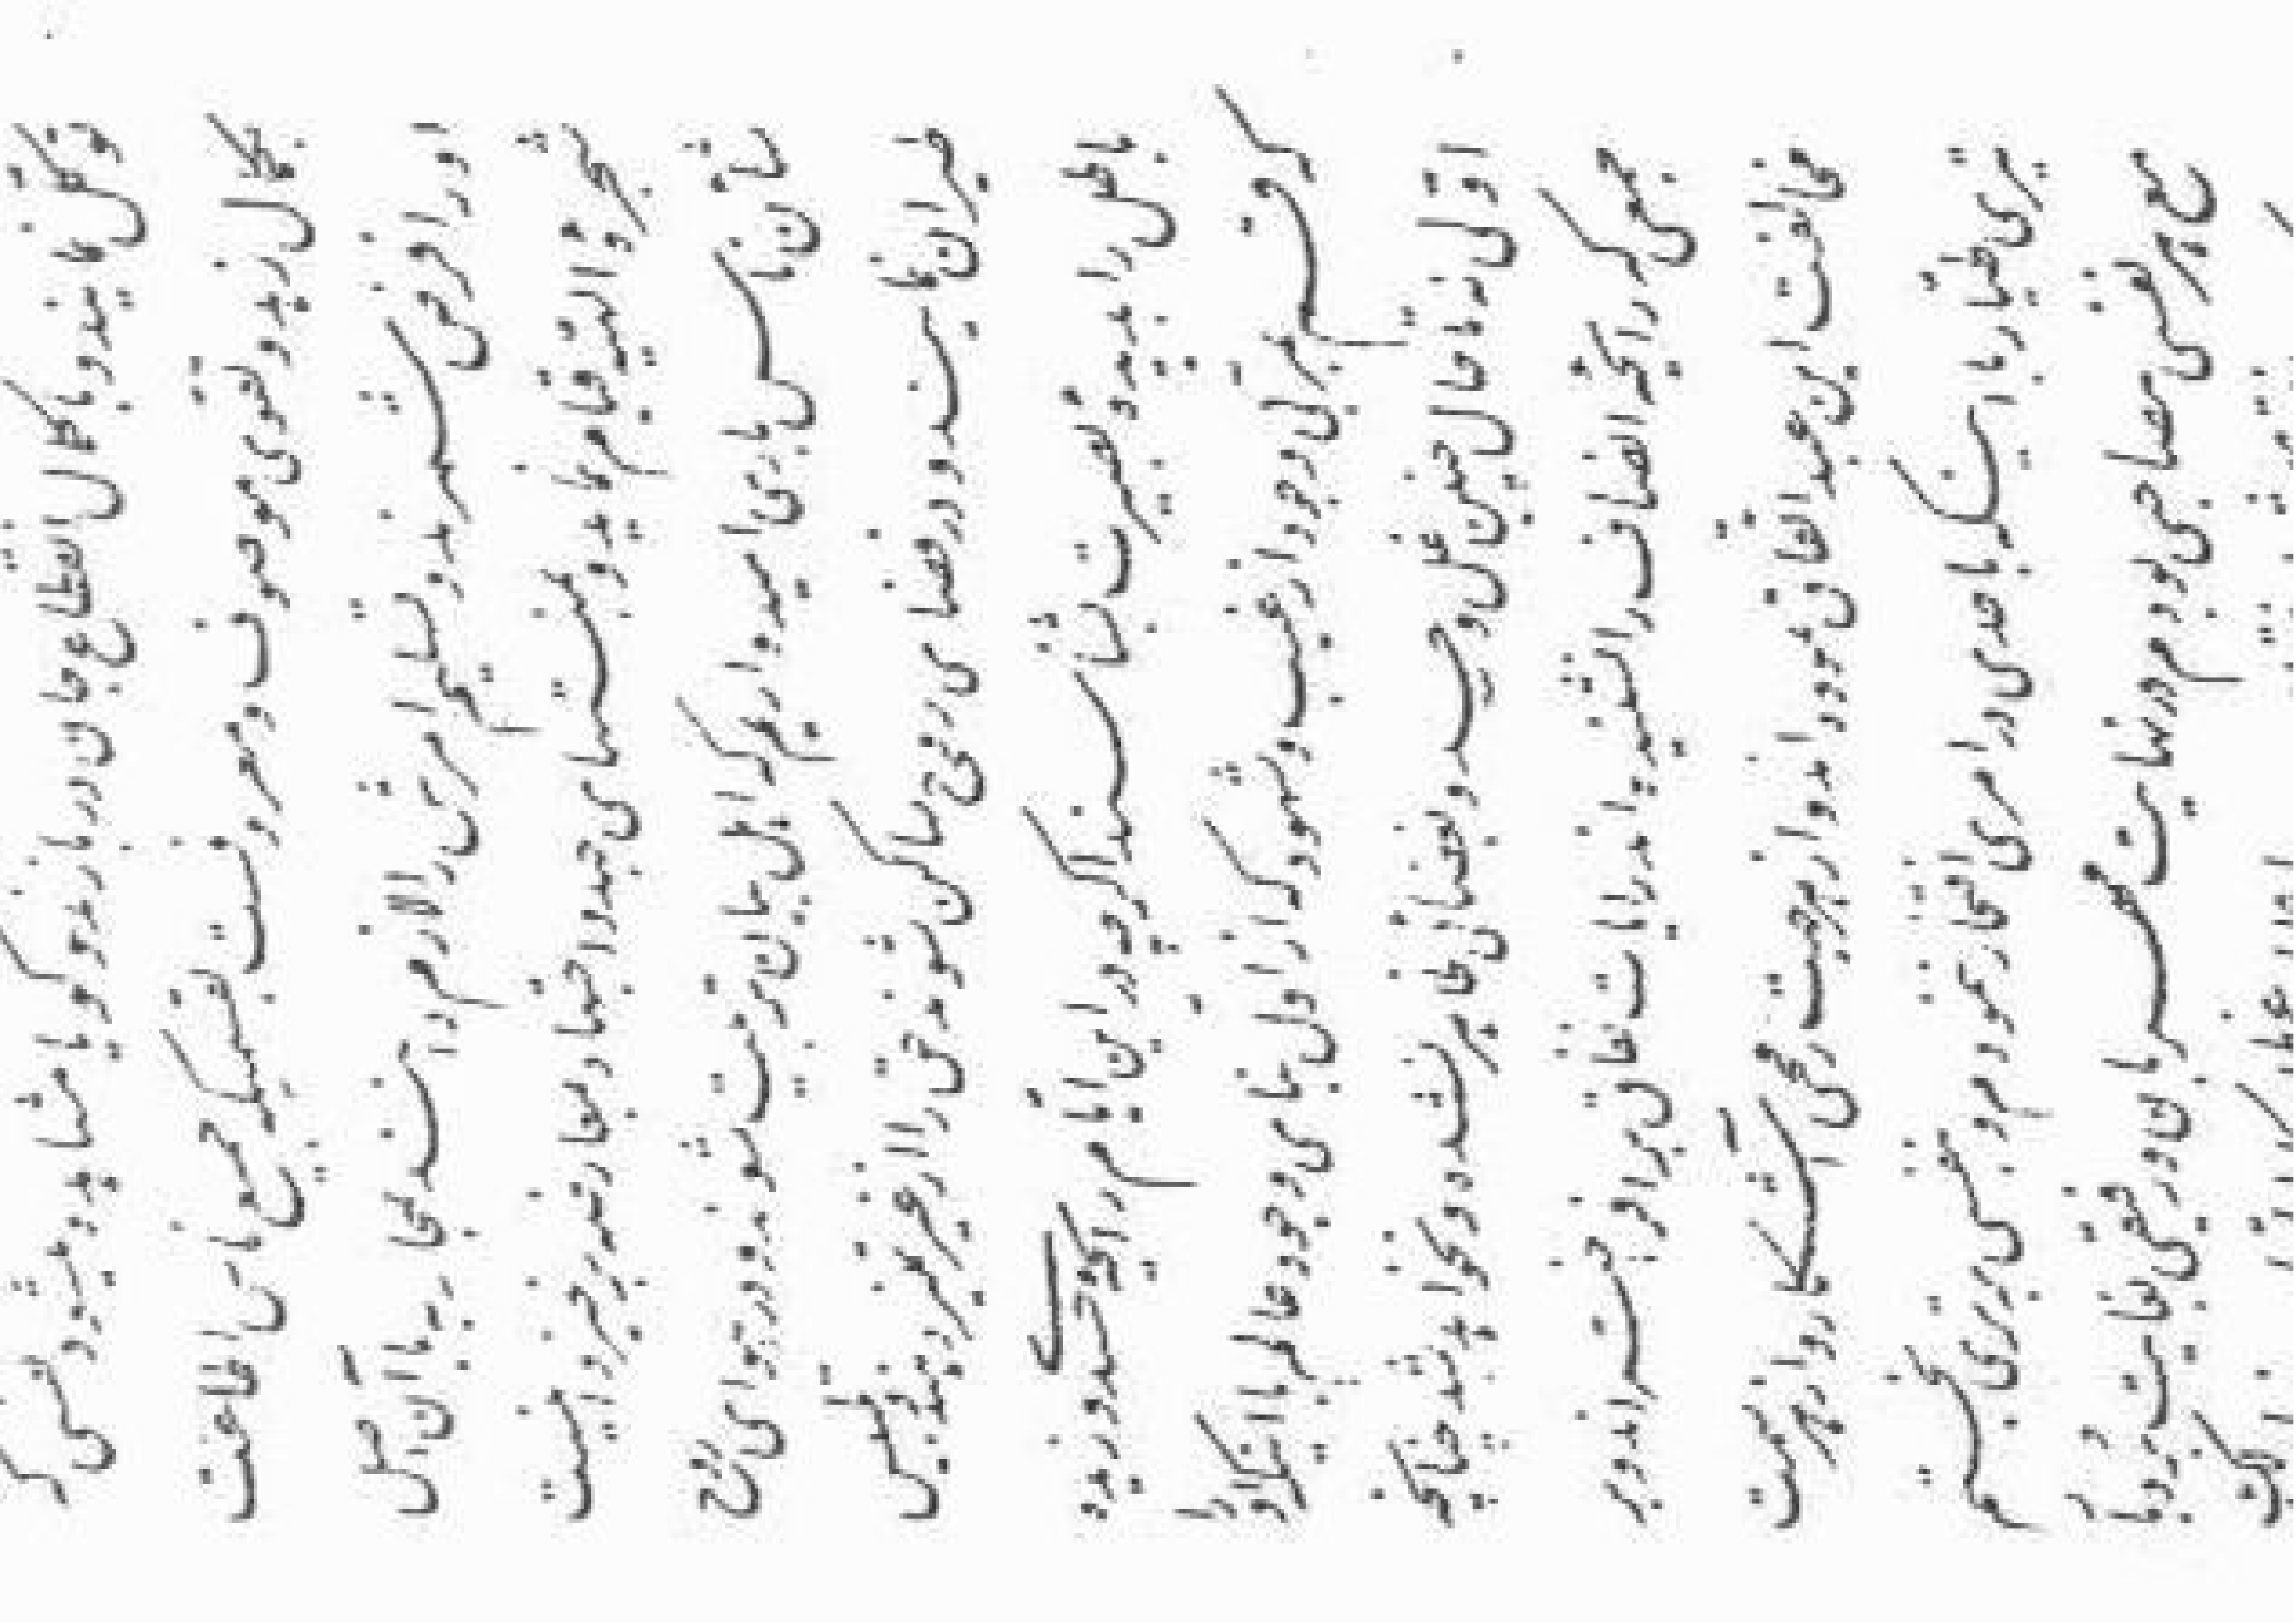 توکّل نمایند و با کمال انقطاع جان دربازند چه که گویا مشاهده میشود کسی که
بکمال زهد و تقوی موصوف و معروفست بقسمیکه جمیع ناس اطاعت
او را فرض شمرند و تسلیم امرش را لازم دانند بمحاربه با آن اصل
شجرهٔ الهیّه قیام نماید و بمنتهای جدّ و اجتهاد بمعارضه برخیزد اینست
شأن ناس باری امیدواریم که اهل بیان تربیت شوند و در هوای روح
طیران نمایند و در فضای روح ساکن شوند حق را از غیر تمیز دهند و تلبیس
باطل را بدیدهٔ بصیرت بشناسند اگرچه در این ایّام رائحهٔ حسدی وزیده
که قسم بمربّی وجود از غیب و شهود که از اوّل بنای وجود عالم با اینکه او را
اوّلی نه تا حال چنین غلّ و حسد و بغضائی ظاهر نشده و نخواهد شد چنانچه
جمعی که رائحهٔ انصاف را نشنیده‌اند رایات نفاق برافراخته‌اند و بر
مخالفت این عبد اتّفاق نموده‌اند و از هر جهت رمحی آشکار و از هر سمت
تیری طیّار با اینکه باحدی در امری افتخار ننمودم و بنفسی برتری نجستم
مع هر نفسی مصاحبی بودم در نهایت مهربان و رفیقی بغایت بردبار